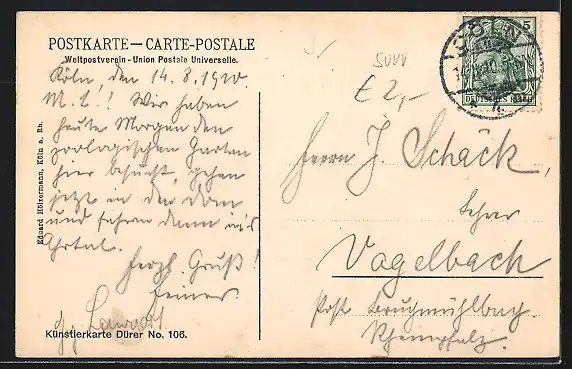 POSTKARTE — CARTE-POSTALE
Weltpostverein - Union Postale Universelle.
Köln, den 14.8.1910.
M. L.! Wir haben
heute Morgen den
zoologischen Garten
hier besucht, gehen
jetzt in den Dom
und fahren dann in's
Ahrtal.
Herzl. Gruß!
Eduard Höltermann, Köln a. Rh.
Künstlerkarte Dürer No. 106.
CÖLN
5
DEUTSCHES REICH
€ 2,-
Herrn J. Schäck,
Lehrer
Vogelbach
Post Bruchmühlbach
Rheinpfalz.